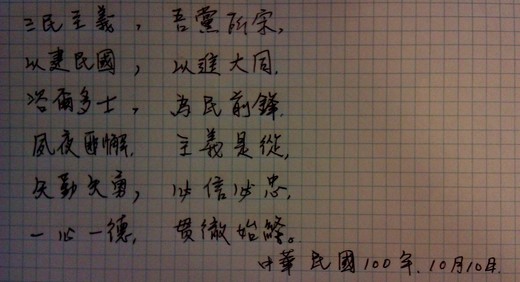 三民主義，吾黨所宗，
以建民國，以進大同，
咨爾多士，為民前鋒，
夙夜匪懈，主義是從，
矢勤矢勇，必信必忠，
一心一德，貫徹始終。
中華民國100年，10月10日